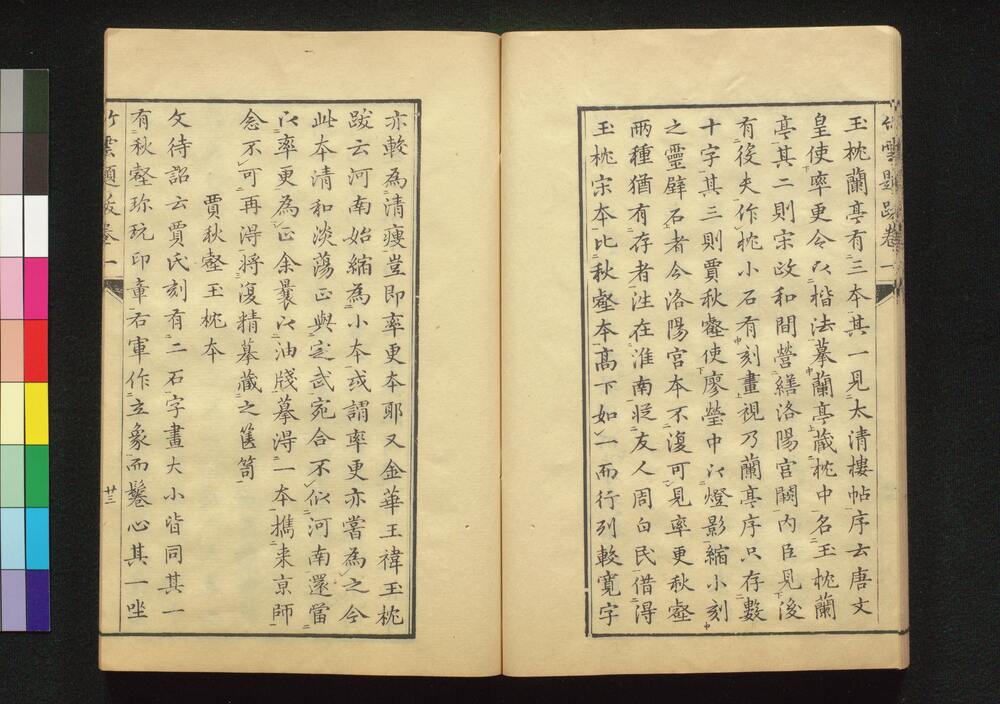 竹雲題跋卷一
玉枕蘭亭有三本其一見太清樓帖序云唐文
皇使率更令以楷法摹蘭亭藏枕中名玉枕蘭
亭其二則宋政和間營繕洛陽宮闕內臣見後
有後夫作枕小石有刻畫視乃蘭亭序只存數
十字其三則賈秋壑使廖瑩中以燈影縮小刻
之靈壁石者今洛陽宮本不復可見率更秋壑
兩種猶有存者往在淮南從友人周白民借得
玉枕宋本比秋壑本高下如一而行列較寬字
亦較為清瘦豈即率更本耶又金華王禕玉枕
跋云河南始縮為小本或謂率更亦嘗為之今
此本清和淡蕩正與定武宛合不似河南還當
以率更為正余曩以油牋摹得一本攜来京師
念不可再得將復精摹藏之篋笥
賈秋壑玉枕本
文待詔云賈氏刻有二石字畫大小皆同其一
有秋壑珎玩印章右軍作立象而鬈心其一坐
竹雲題跋卷一
廿三